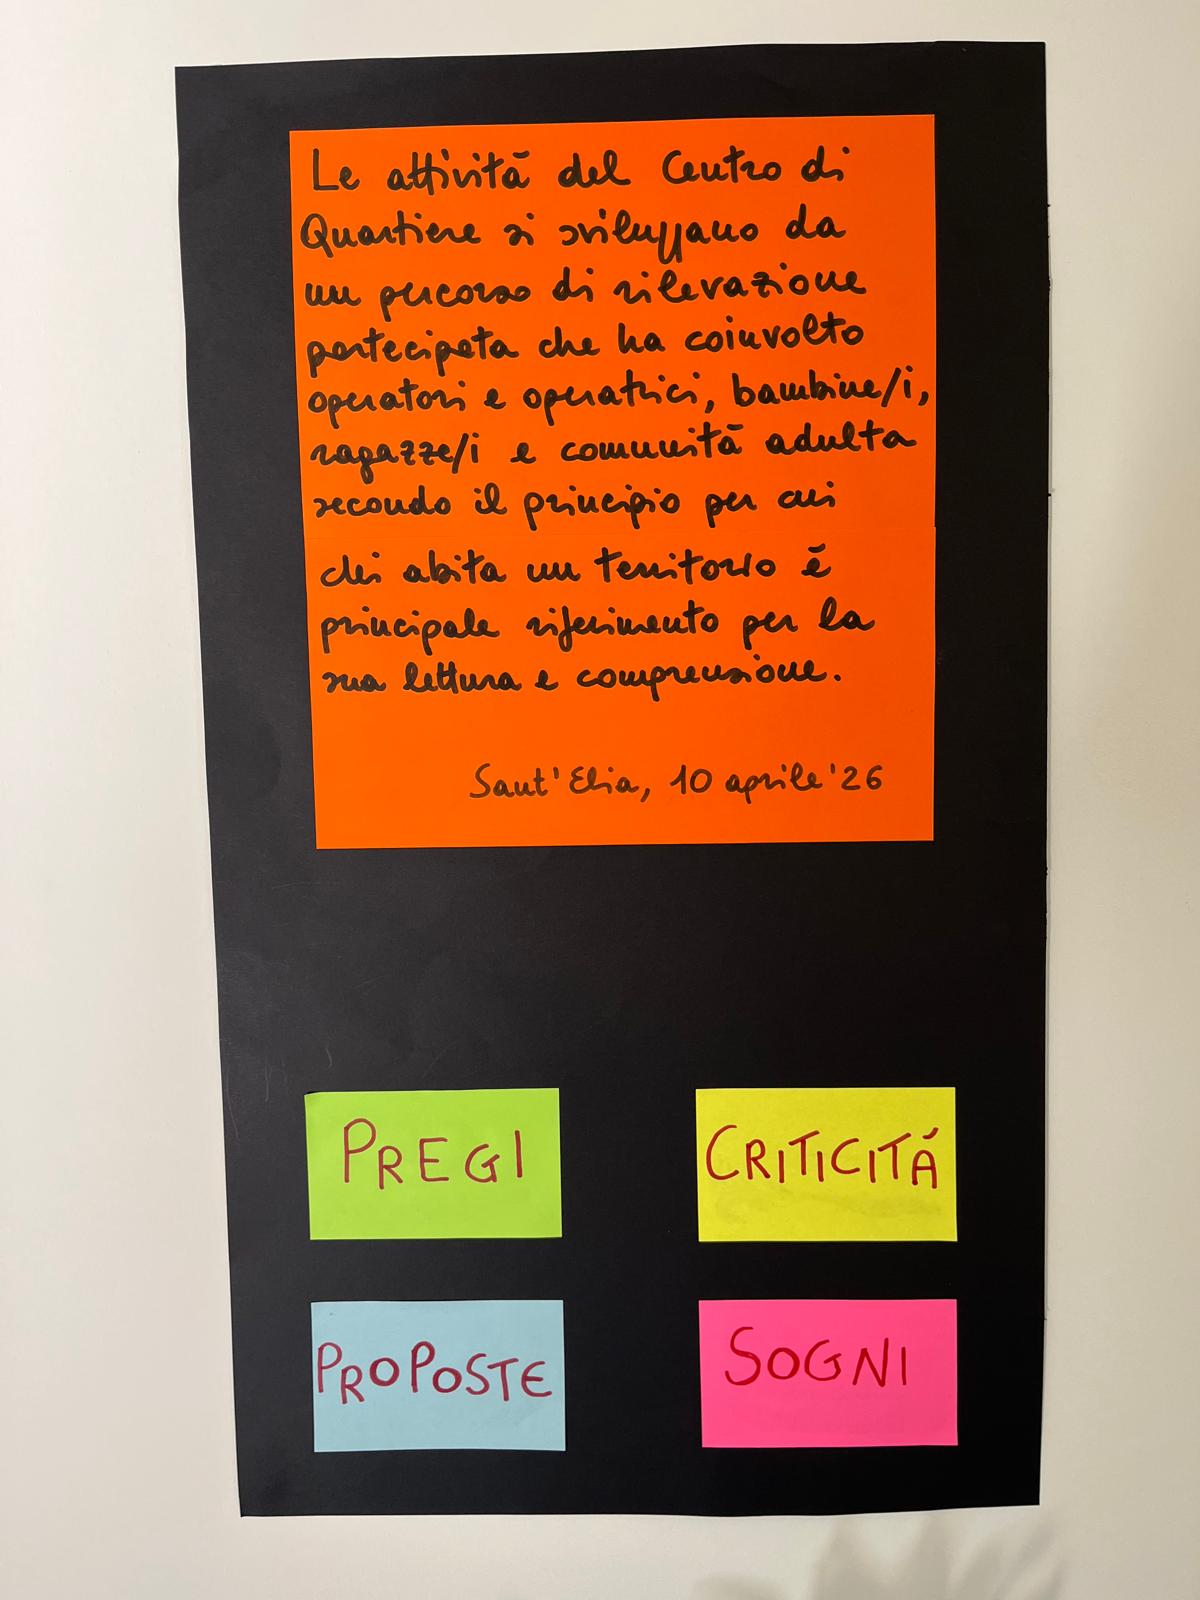 Le attività del Centro di
Quartiere si sviluppano da
un percorso di rilevazione
partecipata che ha coinvolto
operatori e operatrici, bambine/i,
ragazze/i e comunità adulta
secondo il principio per cui
chi abita un territorio è
principale riferimento per la
sua lettura e comprensione.
Sant'Elia, 10 aprile '26
PREGI
CRITICITÁ
PROPOSTE
SOGNI